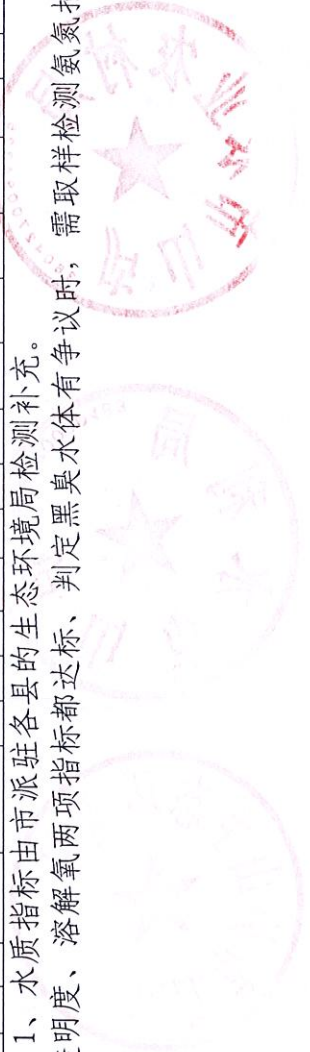 1、水质指标由市派驻各县的生态环境局检测补充。
明度、溶解氧两项指标都达标、判定黑臭水体有争议时，需取样检测氨氮